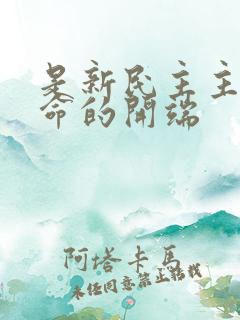 是新民主主
命的開端
阿塔卡馬
未经同意禁止转载